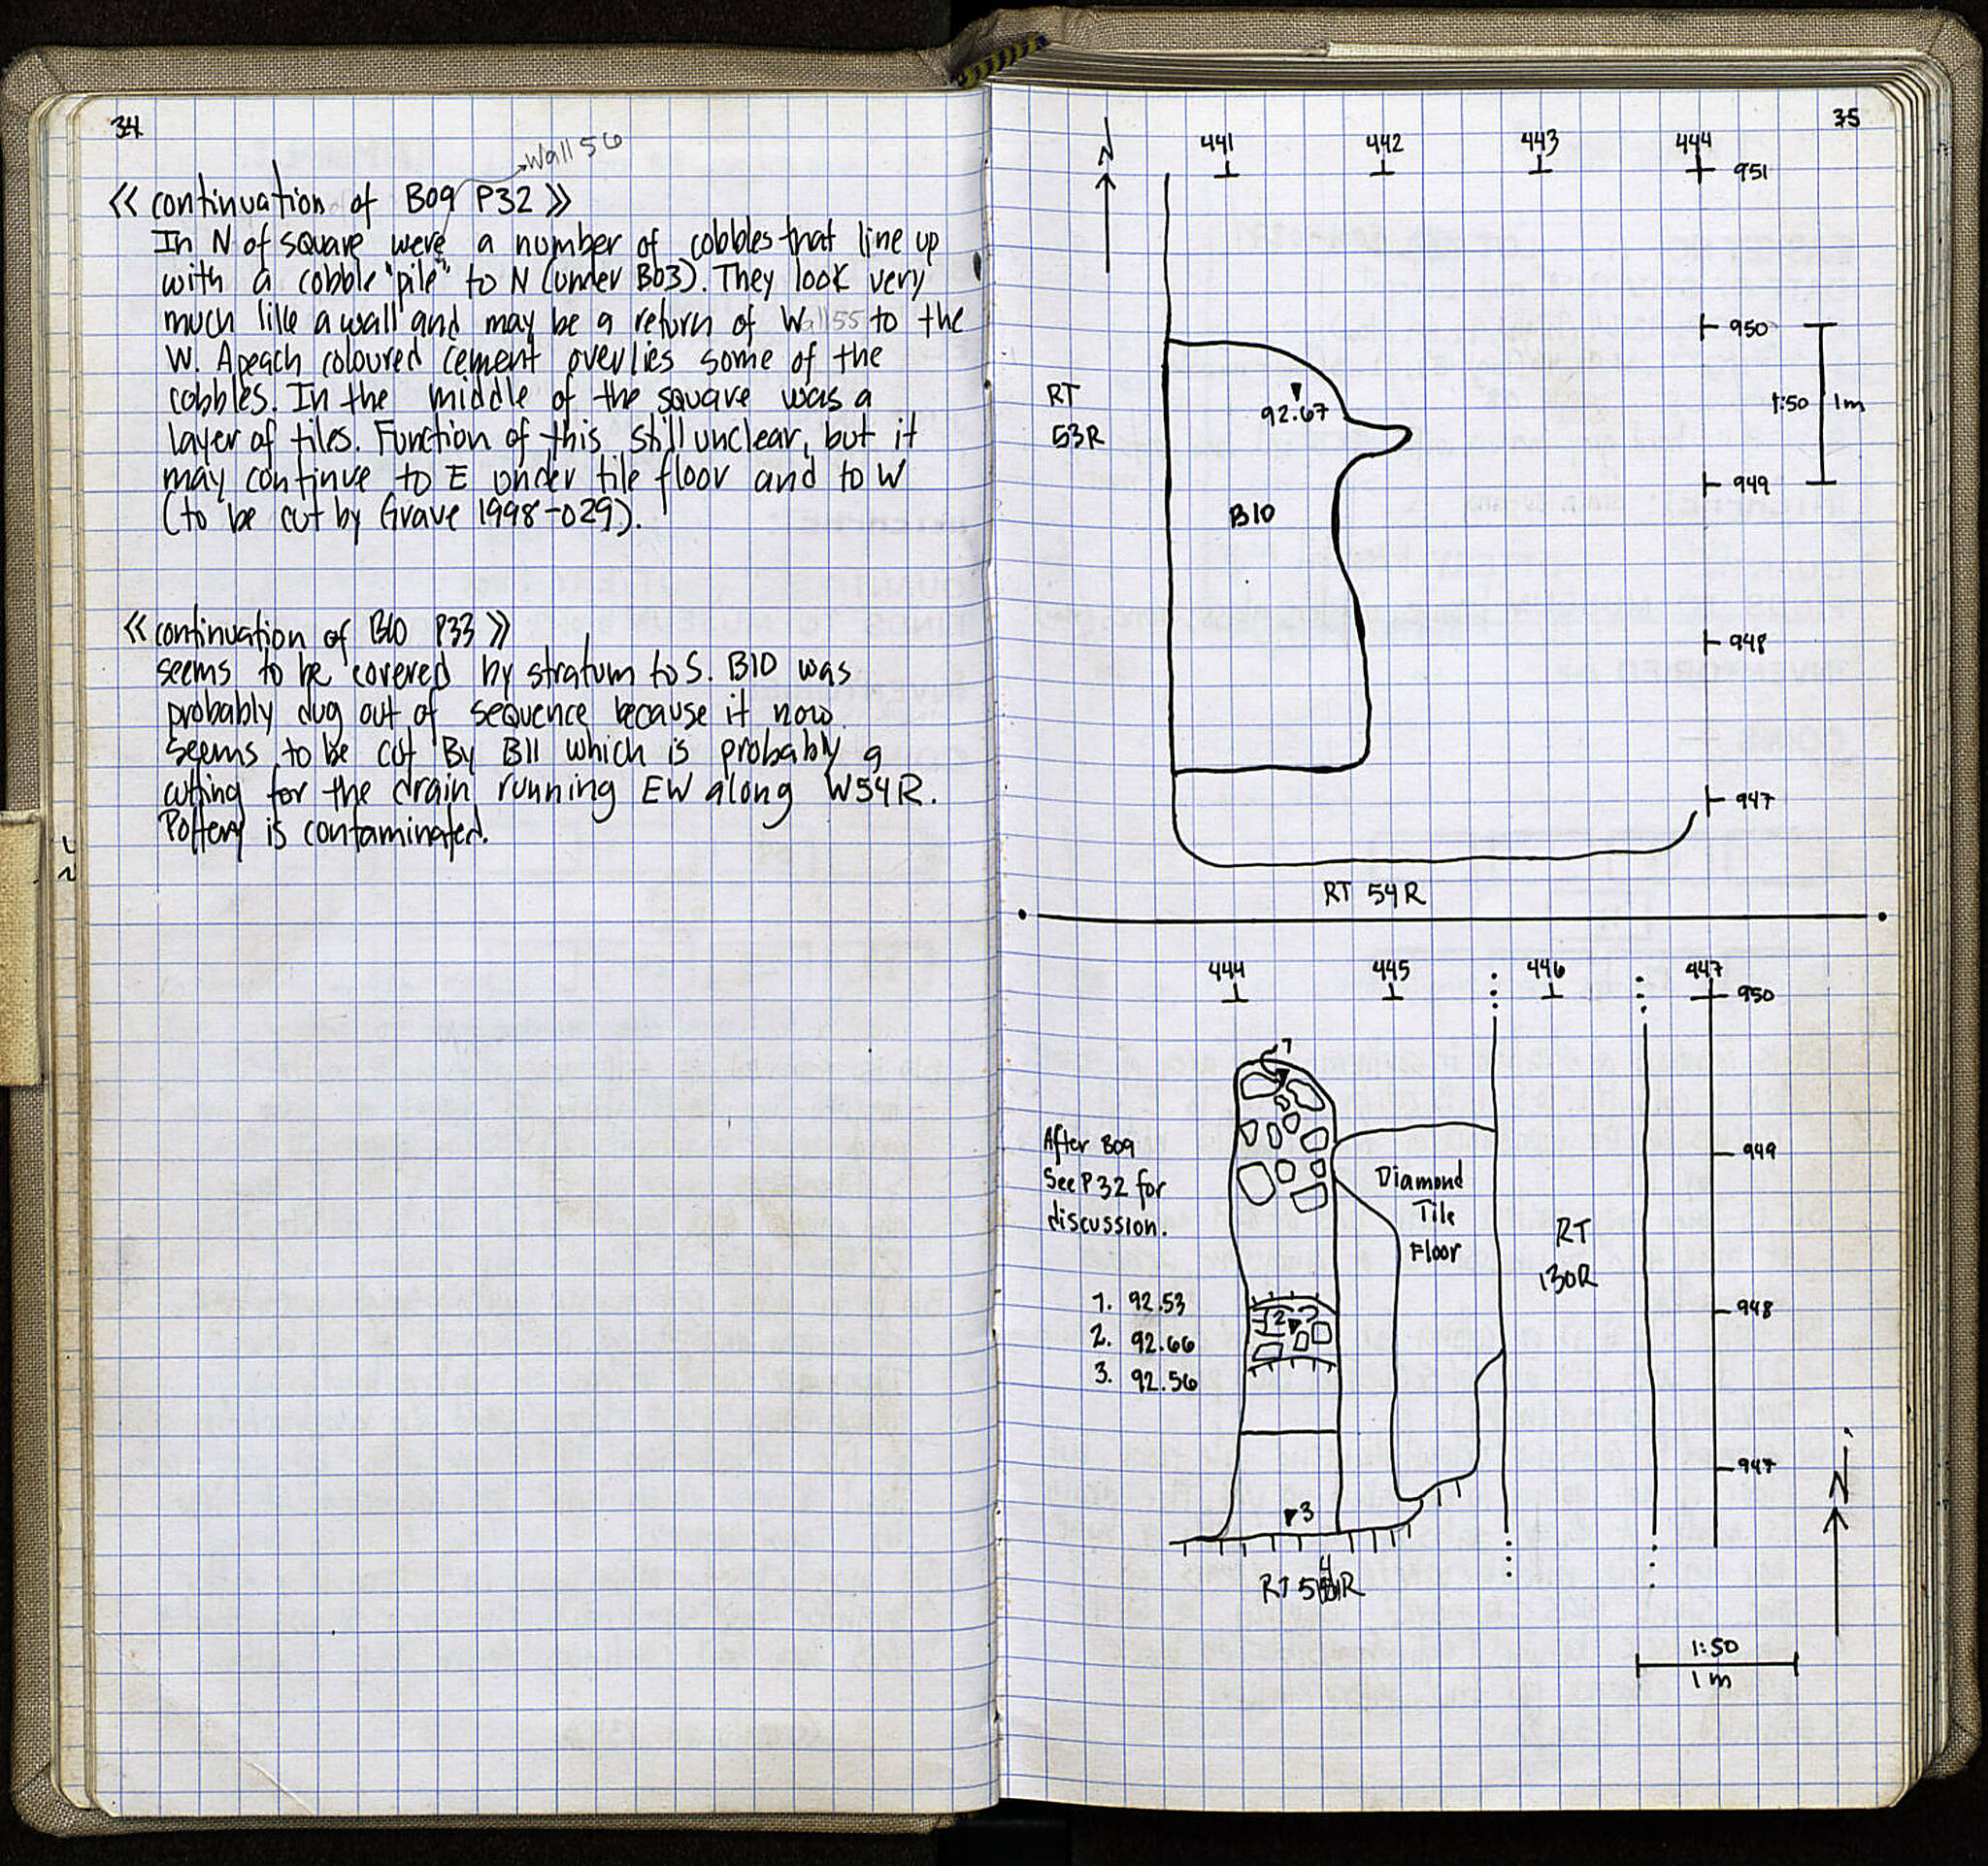 34
Wall 56
<< continuation of B09 P32 >>
In N of square were a number of cobbles that line up
with a cobble "pile" to N (under B03). They look very
much like a wall and may be a return of Wall 55 to the
W. A peach coloured cement overlies some of the
cobbles. In the middle of the square was a
layer of tiles. Function of this still unclear, but it
may continue to E under tile floor and to W
(to be cut by Grave 1998-029).
<< continuation of B10 P33 >>
seems to be covered by stratum to S. B10 was
probably dug out of sequence because it now
seems to be cut By B11 which is probably a
cutting for the drain running EW along W54R.
Pottery is contaminated.
35
N
441 442 443 444
951
950
1:50 1m
949
948
947
RT
53R
92.67
B10
RT 54R
444 445 446 447
950
949
948
947
1
After B09
See P32 for
discussion.
Diamond
Tile
Floor
RT
130R
1. 92.53
2. 92.66
3. 92.56
2
3
RT R
N
1:50
1 m